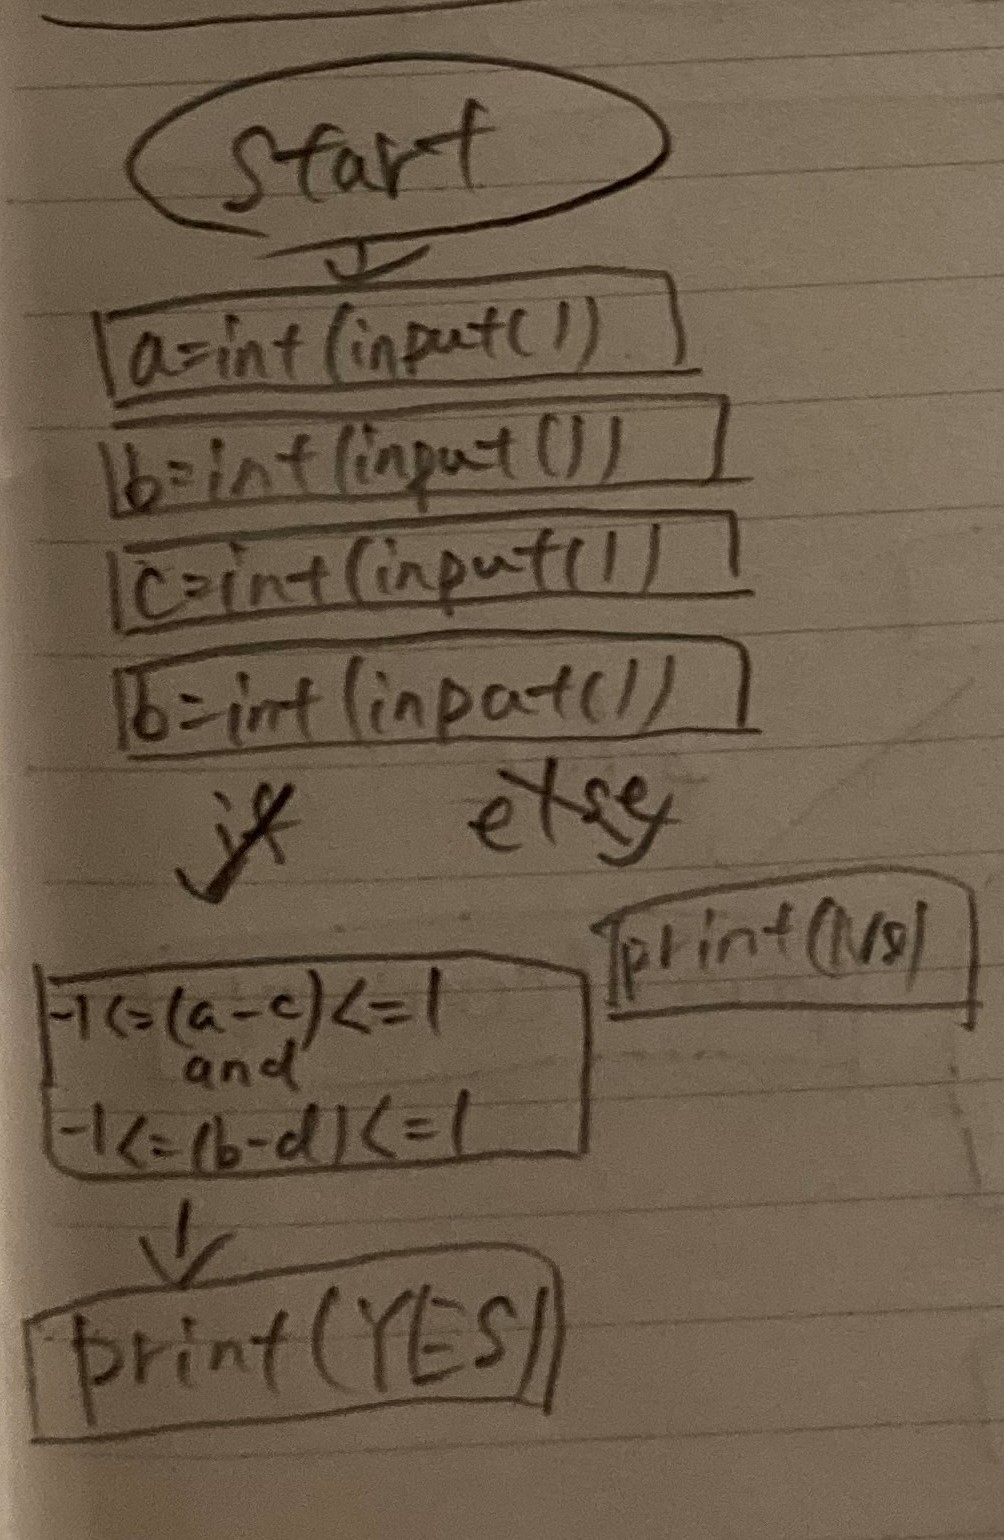 start
a=int(input())
b=int(input())
c=int(input())
b=int(inpat())
if else
print(No)
-1<=(a-c)<=1
and
-1<=(b-d)<=1
print(YES)